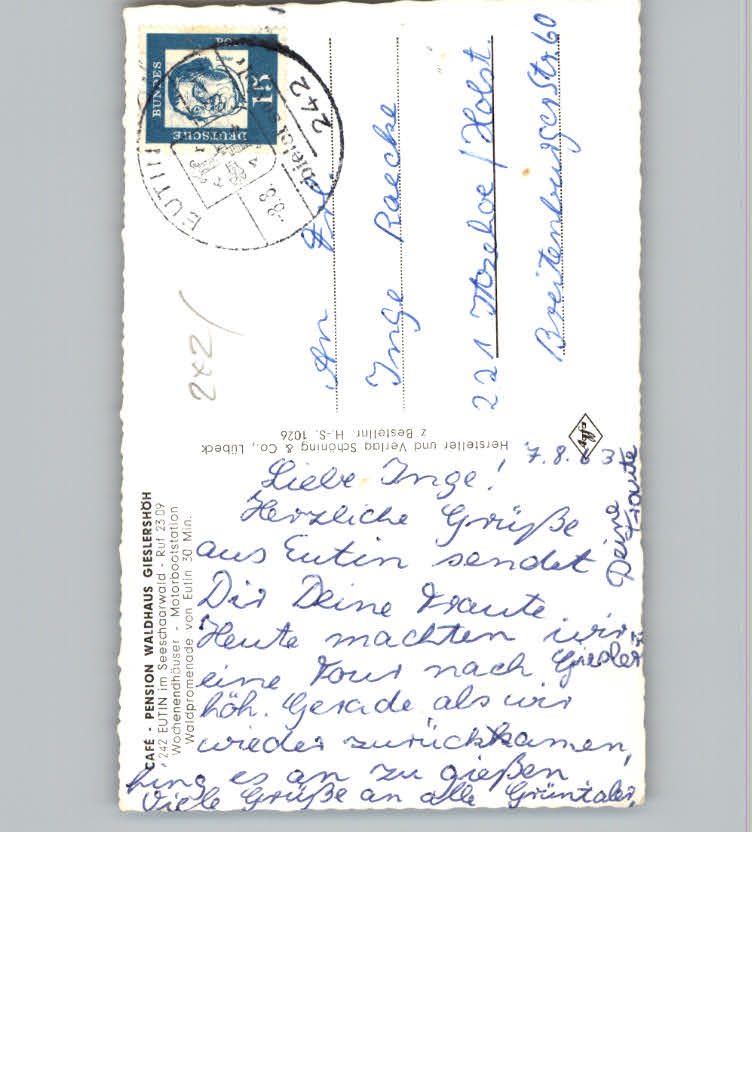 7.8.63
Liebe Inge!
Herzliche Grüße
aus Eutin sendet
Dir Deine Traute.
Heute machten wir
eine Tour nach Giesler
höh. Gerade als wir
wieder zurückkamen,
fing es an zu gießen
Viele Grüße an alle Grüntaler,
Deine
Traute
An Frl.
Inge Raecke
221 Itzehoe / Holst.
Breitenburgerstr. 60
CAFÉ - PENSION WALDHAUS GIESLERSHÖH
242 EUTIN im Seeschaarwald - Ruf 23 09
Wochenendhäuser - Motorbootstation
Waldpromenade von Eutin 30 Min.
Hersteller und Verlag Schöning & Co., Lübeck
z Bestellnr. H.-S. 1026
Agfa
DEUTSCHE
BUNDES
POST
15
EUTIN
242
-8.8.
242/